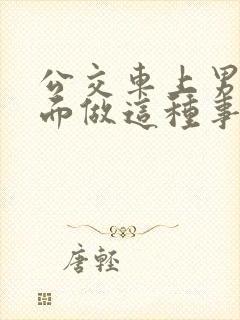 公交車上男
而做這種事
唐輕